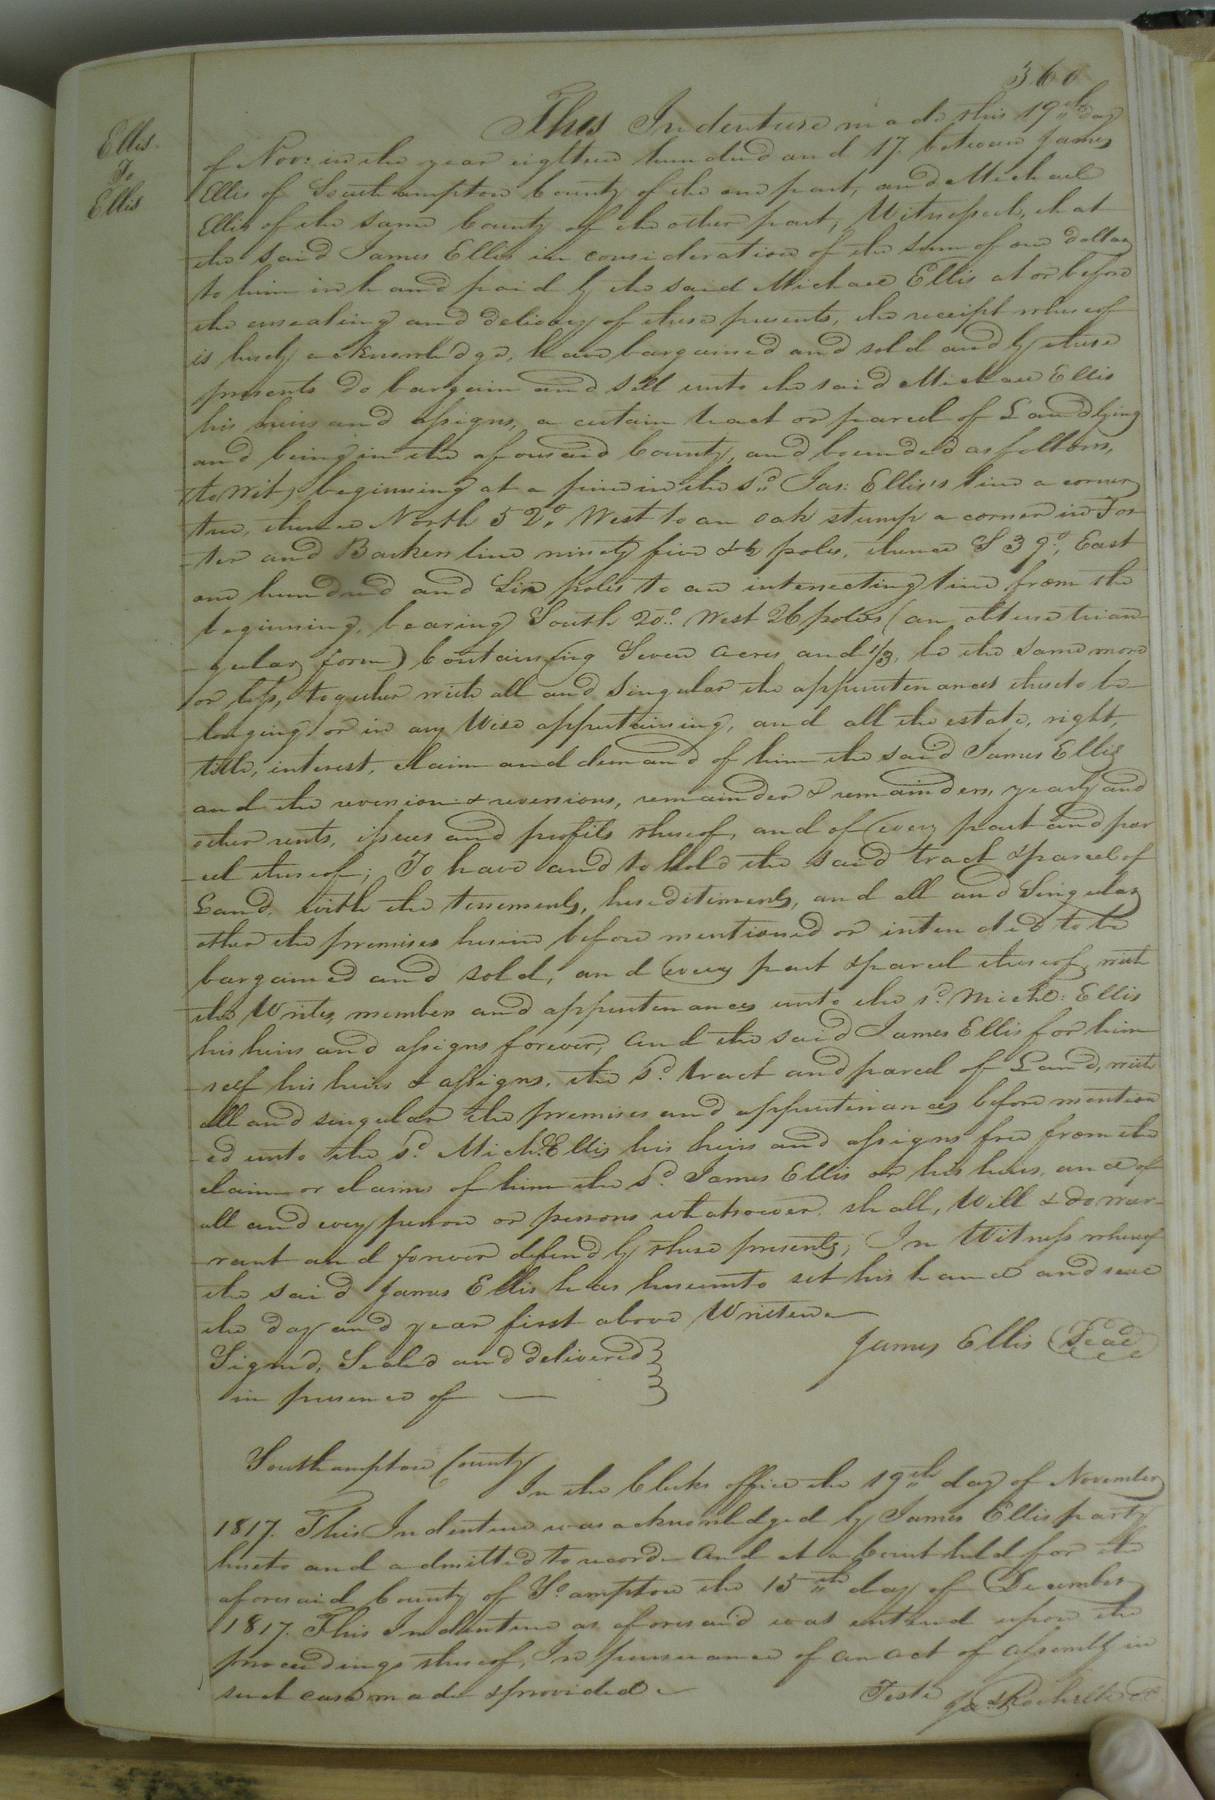 360
Ellis
To
Ellis
This Indenture made this 19th day
of Nov: in the year eighteen hundred and 17. between James
Ellis of Southampton County of the one part, and Michael
Ellis of the same County of the other part, Witnesseth, that
the said James Ellis in consideration of the sum of one dollar
to him in hand paid by the said Michael Ellis at or before
the ensealing and delivery of these presents, the receipt whereof
is hereby acknowledge, have bargained and sold and by these
presents do bargain and sell unto the said Michael Ellis
his heirs and assigns, a certain tract or parcel of Land lying
and being in the aforesaid County, and bounded as follows,
(to wit) beginning at a pine in the sd. Jas: Ellis's line a corner
tree, thence North 52° West to an oak stump a corner in Fos-
ter and Barkers line ninety five & ½ poles, thence S 39° East
one hundred and Six poles to an intersecting line from the
beginning, bearing South 20° West 26 poles (an obtuse trian-
-gular form) Containing Seven acres and 1/3, be the same more
or less, together with all and Singular the appurtenances thereto be-
-longing or in any Wise appertaining, and all the estate, right,
title, interest, claim and demand of him the said James Ellis
and the reversion & reversions, remainder & remainders, yearly and
other rents, issues and profits thereof, and of every part and par
-cel thereof; To have and to hold the said tract & parcel of
Land, with the tenements, hereditiments, and all and Singular
other the premises herein before mentioned or intended to be
bargained and sold, and every part & parcel thereof, with
the Writes, members and appurtenances unto the sd. Michl: Ellis
his heirs and assigns forever, And the said James Ellis for him
-self his heirs & assigns, the sd. tract and parcel of Land, with
all and singular the premises and appurtenances before mention
-ed unto the sd. Michl. Ellis his heirs and assigns free from the
claim or claims of him the sd. James Ellis or his heirs, and of
all and every person or persons whatsoever. shall, Will & do war-
-rant and forever defend by these presents; In Witness whereof
the said James Ellis has hereunto set his hand and seal
the day and year first above Written
Signed, Sealed and delivered
in presence of
James Ellis Seal
Southampton County
In the Clerks office the 19th day of November
1817. This Indenture was acknowledged by James Ellis party
hereto and admitted to record And at a Court held for the
aforesaid County of So.ampton the 15th day of December
1817. This Indenture as aforesaid was entered upon the
proceedings thereof, In pursuance of an act of assembly in
such case made & provided
Teste Jas. Rochelle